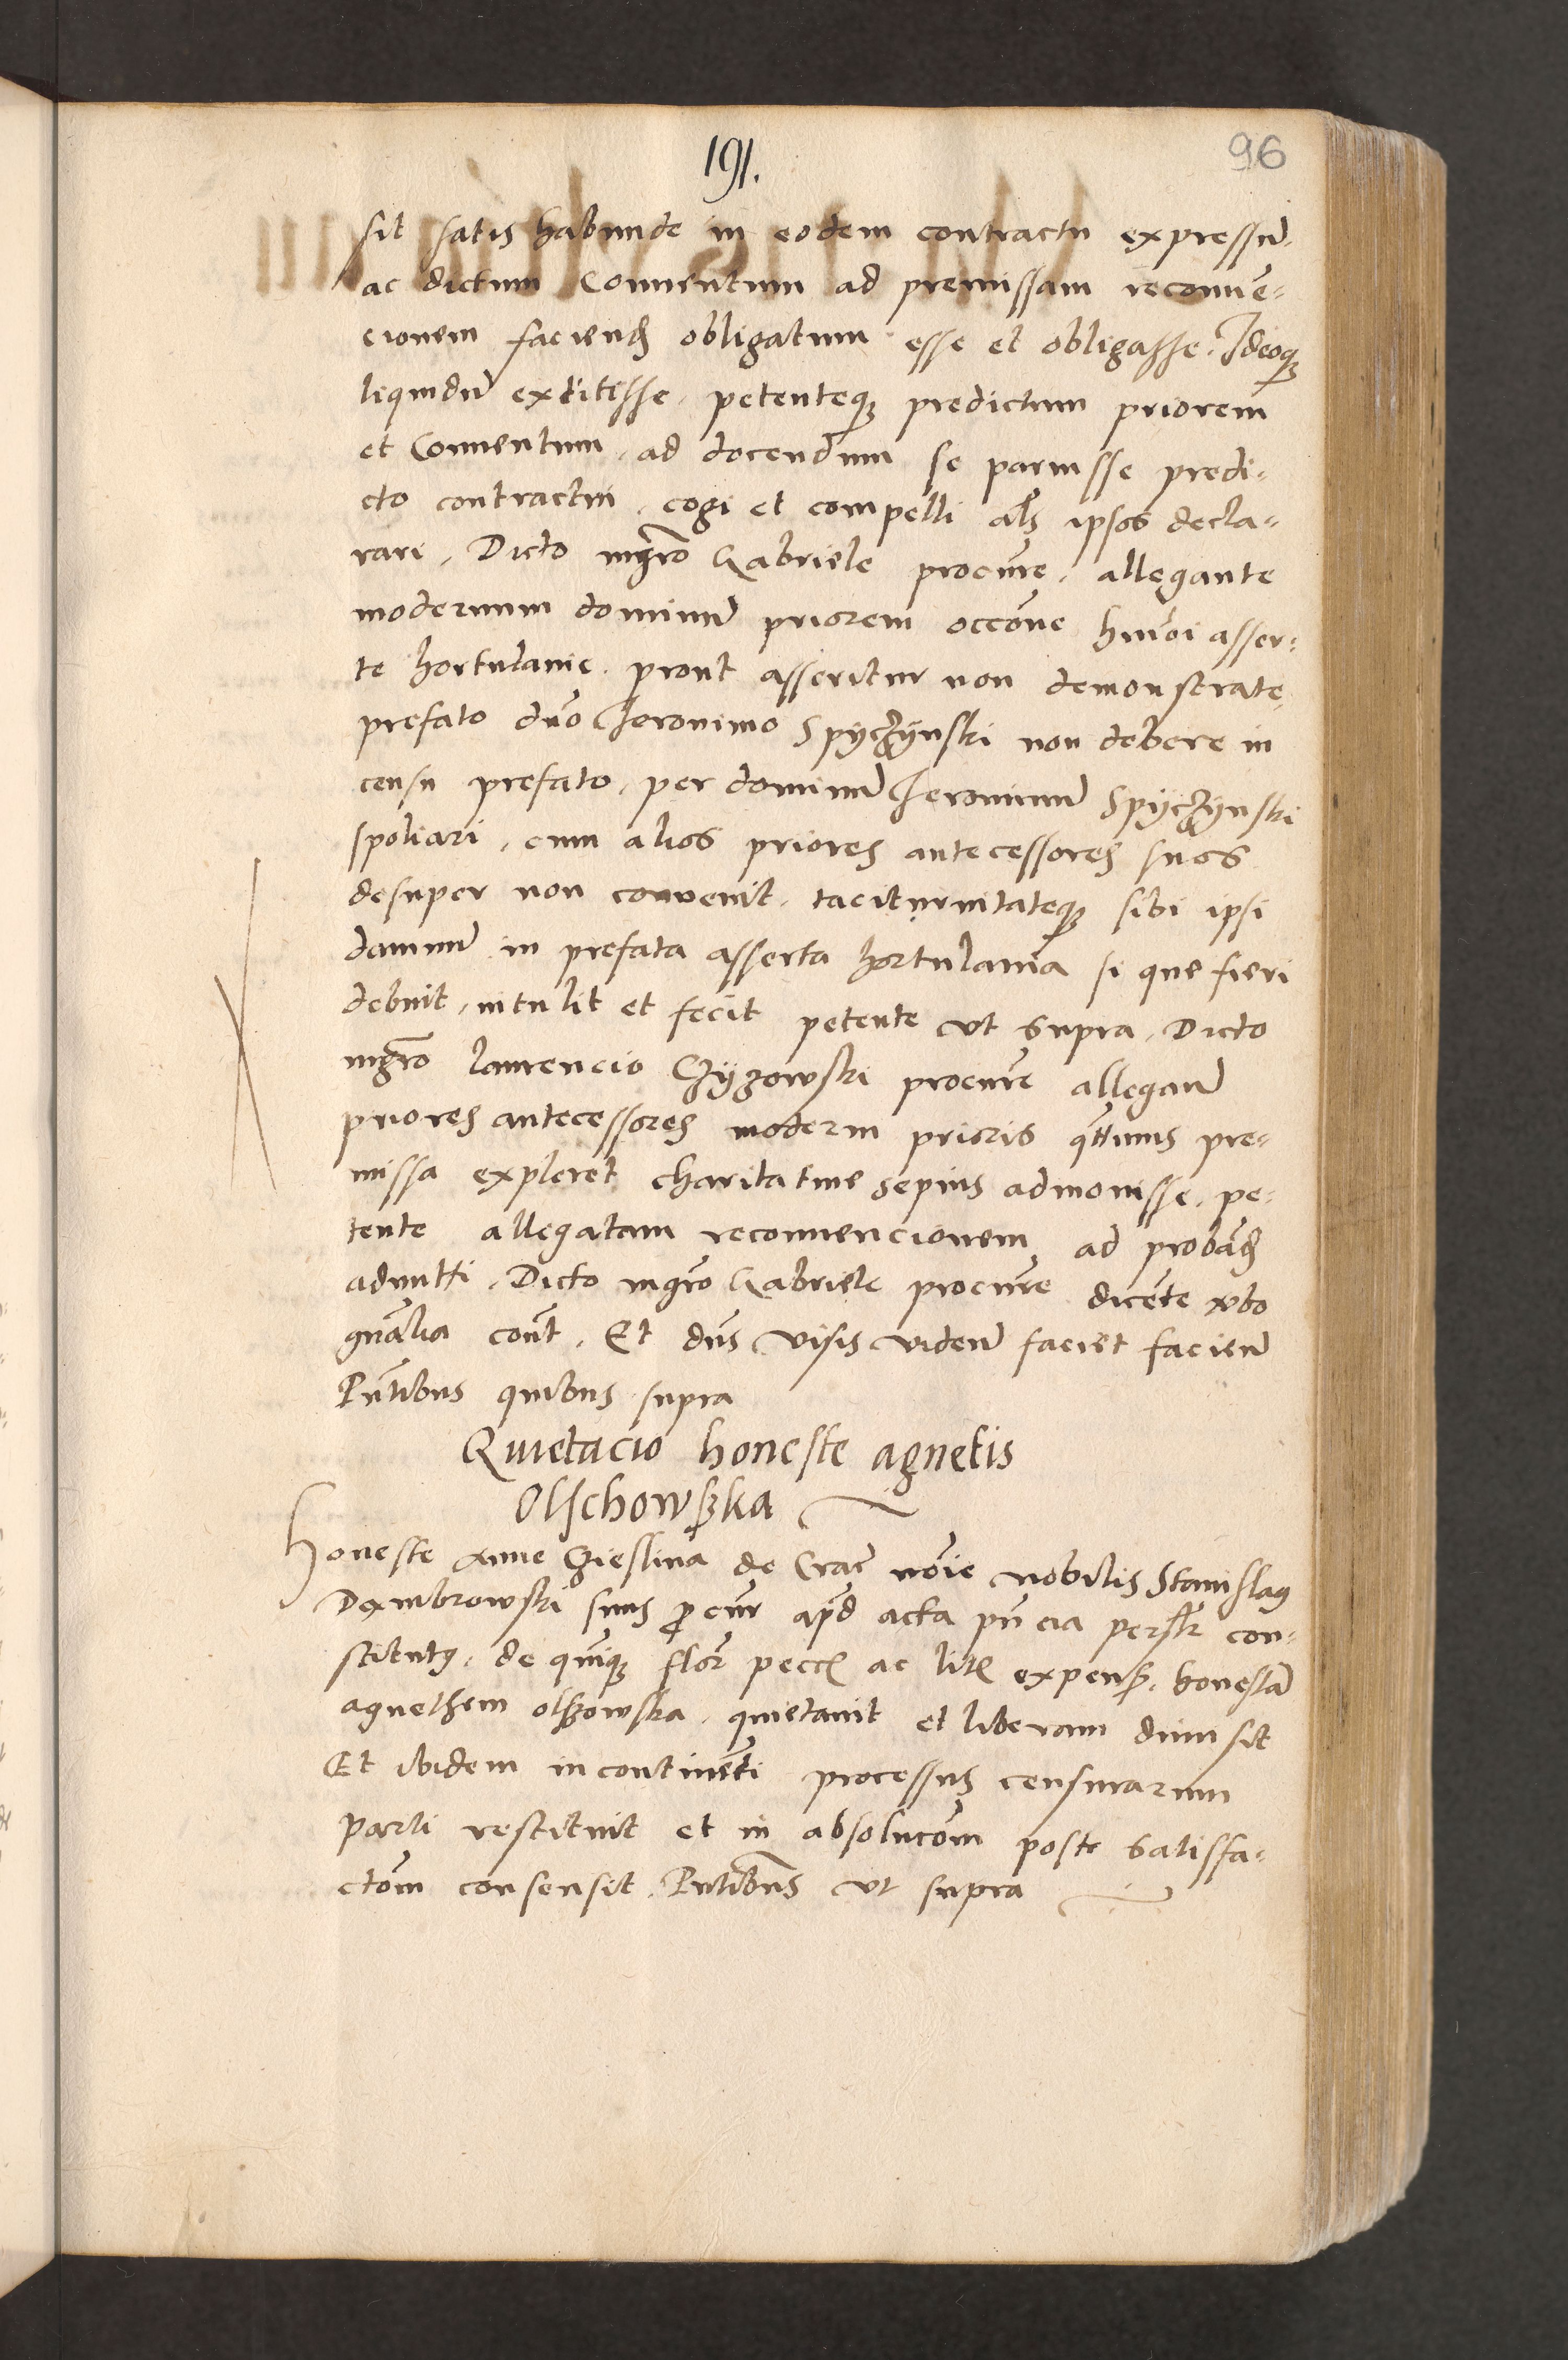 191.
96
sit satis habunde in eodem contractu expressu̅.
ac dictum Conuentum ad premissam reconue̅-
cionem faciend̨ obligatum esse et obligasse. Ideoq̨
liquidu̅ extitisse. petenteq̨ predictum priorem
et Conuentum. ad docendum se paruisse predi-
cto contractui. cogi et compelli als̨ ipsos decla-
rari. Dicto mg̅ro Gabriele procur̅e. allegante
modernum dominu̅ priorem occo̅ne hmo̅i asser-
te hortulanie. prout asseritur non demonstrate
prefato dn̅o Jeronimo Spyczynski non debere in
censu prefato. per dominu̅ Jeronimu̅ Spyczynski
spoliari. cum alios priores antecessores suos
desuper non convenit. taciturnitateq̨ sibi ipsi
damnu̅ in prefata asserta hortulania si que fieri
debuit. intulit et fecit petente vt supra. Dicto
mg̅ro laurencio Czyzowski procur̅e allegan̅
priores antecessores moderni prioris q̅ttinus pre-
missa expleret charitatiue sepius admonisse. pe-
tente allegatam reconuencionem ad proba̅d̨
admitti. Dicto mg̅ro Gabriele procur̅e dice̅te v̅bo
gn̅alia con̅t. Et dn̅s visis viden̅ faciet facien̅
Pn̅tibus quibus supra
Quietacio honeste agnetis
Olschowska
Honeste Anne Czieslina de Crac̅ no̅ie nobilis Stanislaus
Dembrowski suus procur ap̅d acta pn̅cia perslr con-
stitutus. de qui̅q̨ flor̅ pecc̨ ac lit̨ expens̨. honesta̅
agnethem olszowska. quietauit et liberam dimisit
Et ibidem incontine̅ti processus censurarum
parti restituit et in absoluco̅m post satisfa-
cto̅m consensit. Pn̅tibus vt supra